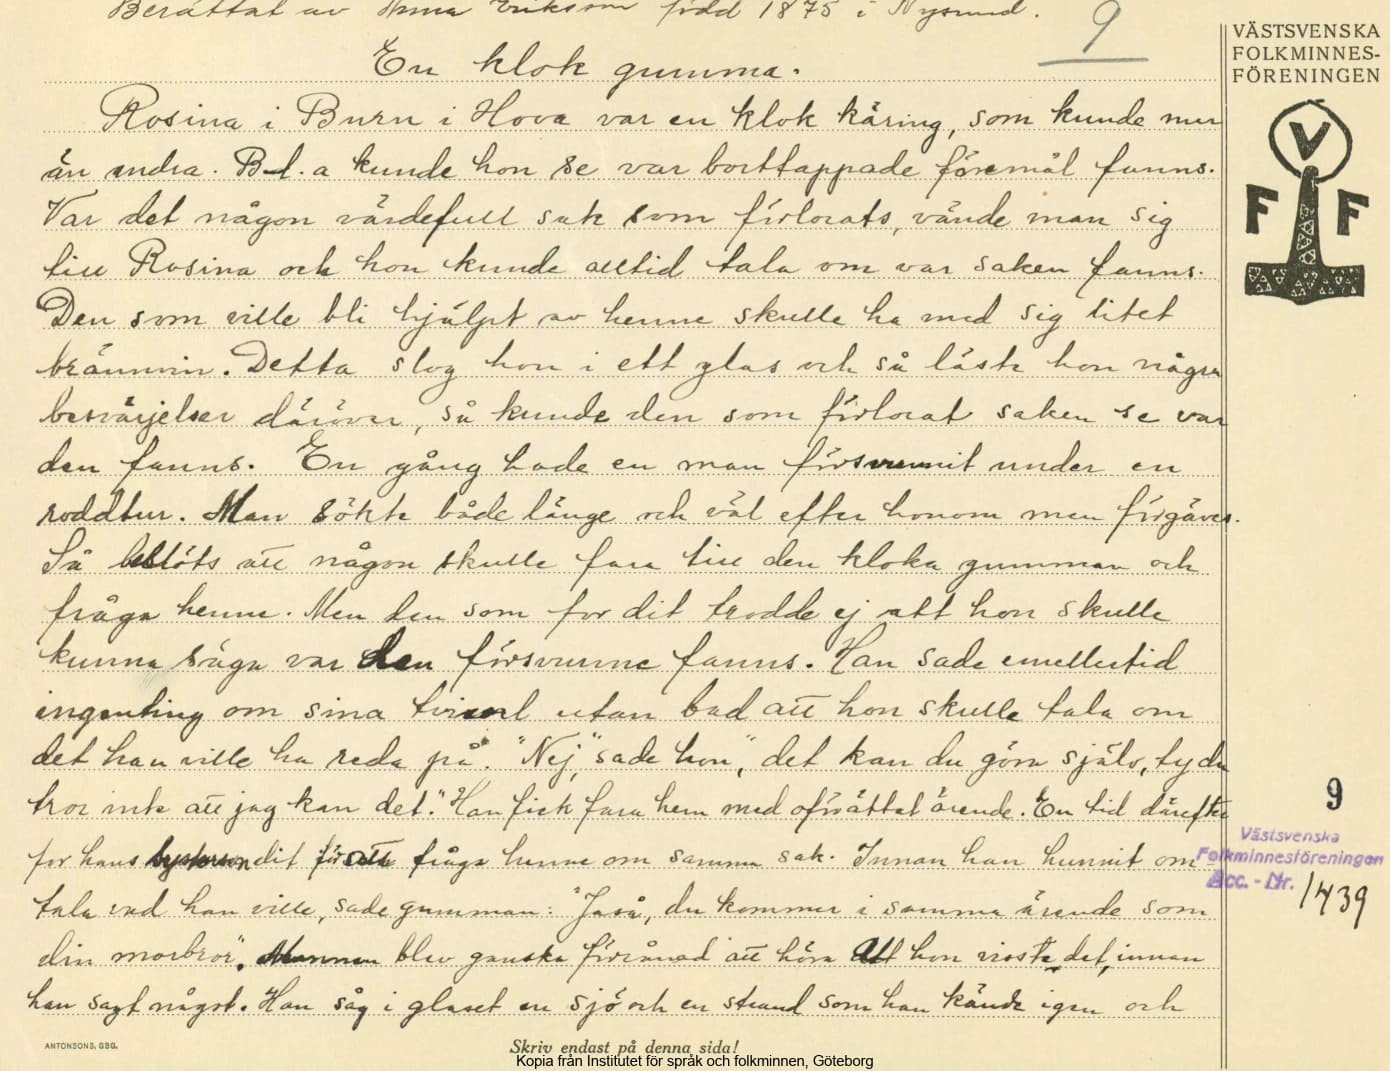 Berättat av Anna Eriksson född 1875 i Nysund.
9
En klok gumma.
Rosina i Burn i Hova var en klok käring, som kunde mer
än andra. Bl.a kunde hon se var borttappade föremål fanns.
Var det någon värdefull sak som förlorats, vände man sig
till Rosina och hon kunde alltid tala om var saken fanns.
Den som ville bli hjälpt av henne skulle ha med sig litet
brännvin. Detta slog hon i ett glas och så läste hon några
besvärjelser däröver, så kunde den som förlorat saken se var
den fanns. En gång hade en man försvunnit under en
roddtur. Man sökte både länge och väl efter honom men förgäves.
Så beslöts att någon skulle fara till den kloka gumman och
fråga henne. Men den som for dit trodde ej att hon skulle
kunna säga var den försvunne fanns. Han sade emellertid
ingenting om sina tvivel utan bad att hon skulle tala om
det han ville ha reda på. "Nej," sade hon, "det kan du göra själv, ty du
tror inte att jag kan det." Han fick fara hem med oförättat ärende. En tid därefter
for hans systerson dit för att fråga henne om samma sak. Innan han hunnit om-
tala vad han ville, sade gumman: "Jaså, du kommer i samma ärende som
din morbror". Mannen blev ganska förvånad att höra att hon visste det, innan
han sagt något. Han såg i glaset en sjö och en strand som han kände igen och
VÄSTSVENSKA
FOLKMINNES-
FÖRENINGEN
V
F F
9
Västsvenska
Folkminnesföreningen
Acc.-Nr. 1439
ANTONSONS, GBG.
Skriv endast på denna sida!
Kopia från Institutet för språk och folkminnen, Göteborg